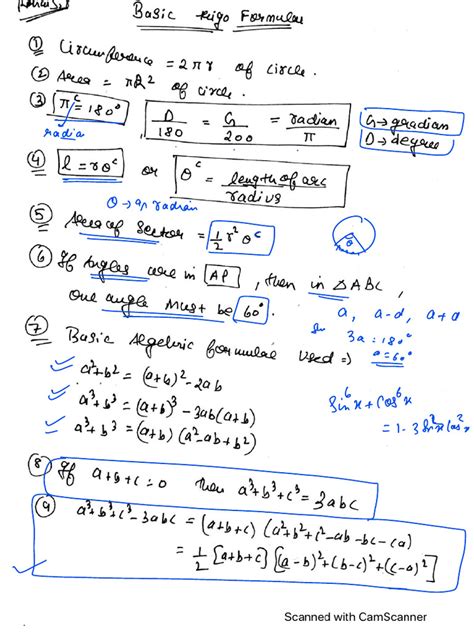 Basic Trigo Formulae
① Circumference = 2πr of circle.
② Area = πR² of circle.
③ π^c = 180° D/180 = G/200 = radian/π G → gradian
radia D → degree
④ l = rθ^c or θ^c = length of arc/radius
θ → in radian
⑤ Area of Sector = 1/2 r² θ^c θ
⑥ If Angles are in AP, then in △ABC,
one angle must be 60° a, a-d, a+d
3a = 180°
⑦ Basic Algebric formulae used ⇒ a = 60°
a²+b² = (a+b)² - 2ab
a³+b³ = (a+b)³ - 3ab(a+b) Sin⁶x + Cos⁶x
a³+b³ = (a+b)(a²-ab+b²) = 1-3Sin²x Cos²x
⑧ If a+b+c = 0 then a³+b³+c³ = 3abc
⑨ a³+b³+c³-3abc = (a+b+c)(a²+b²+c²-ab-bc-ca)
= 1/2 [a+b+c][(a-b)²+(b-c)²+(c-a)²]
Scanned with CamScanner